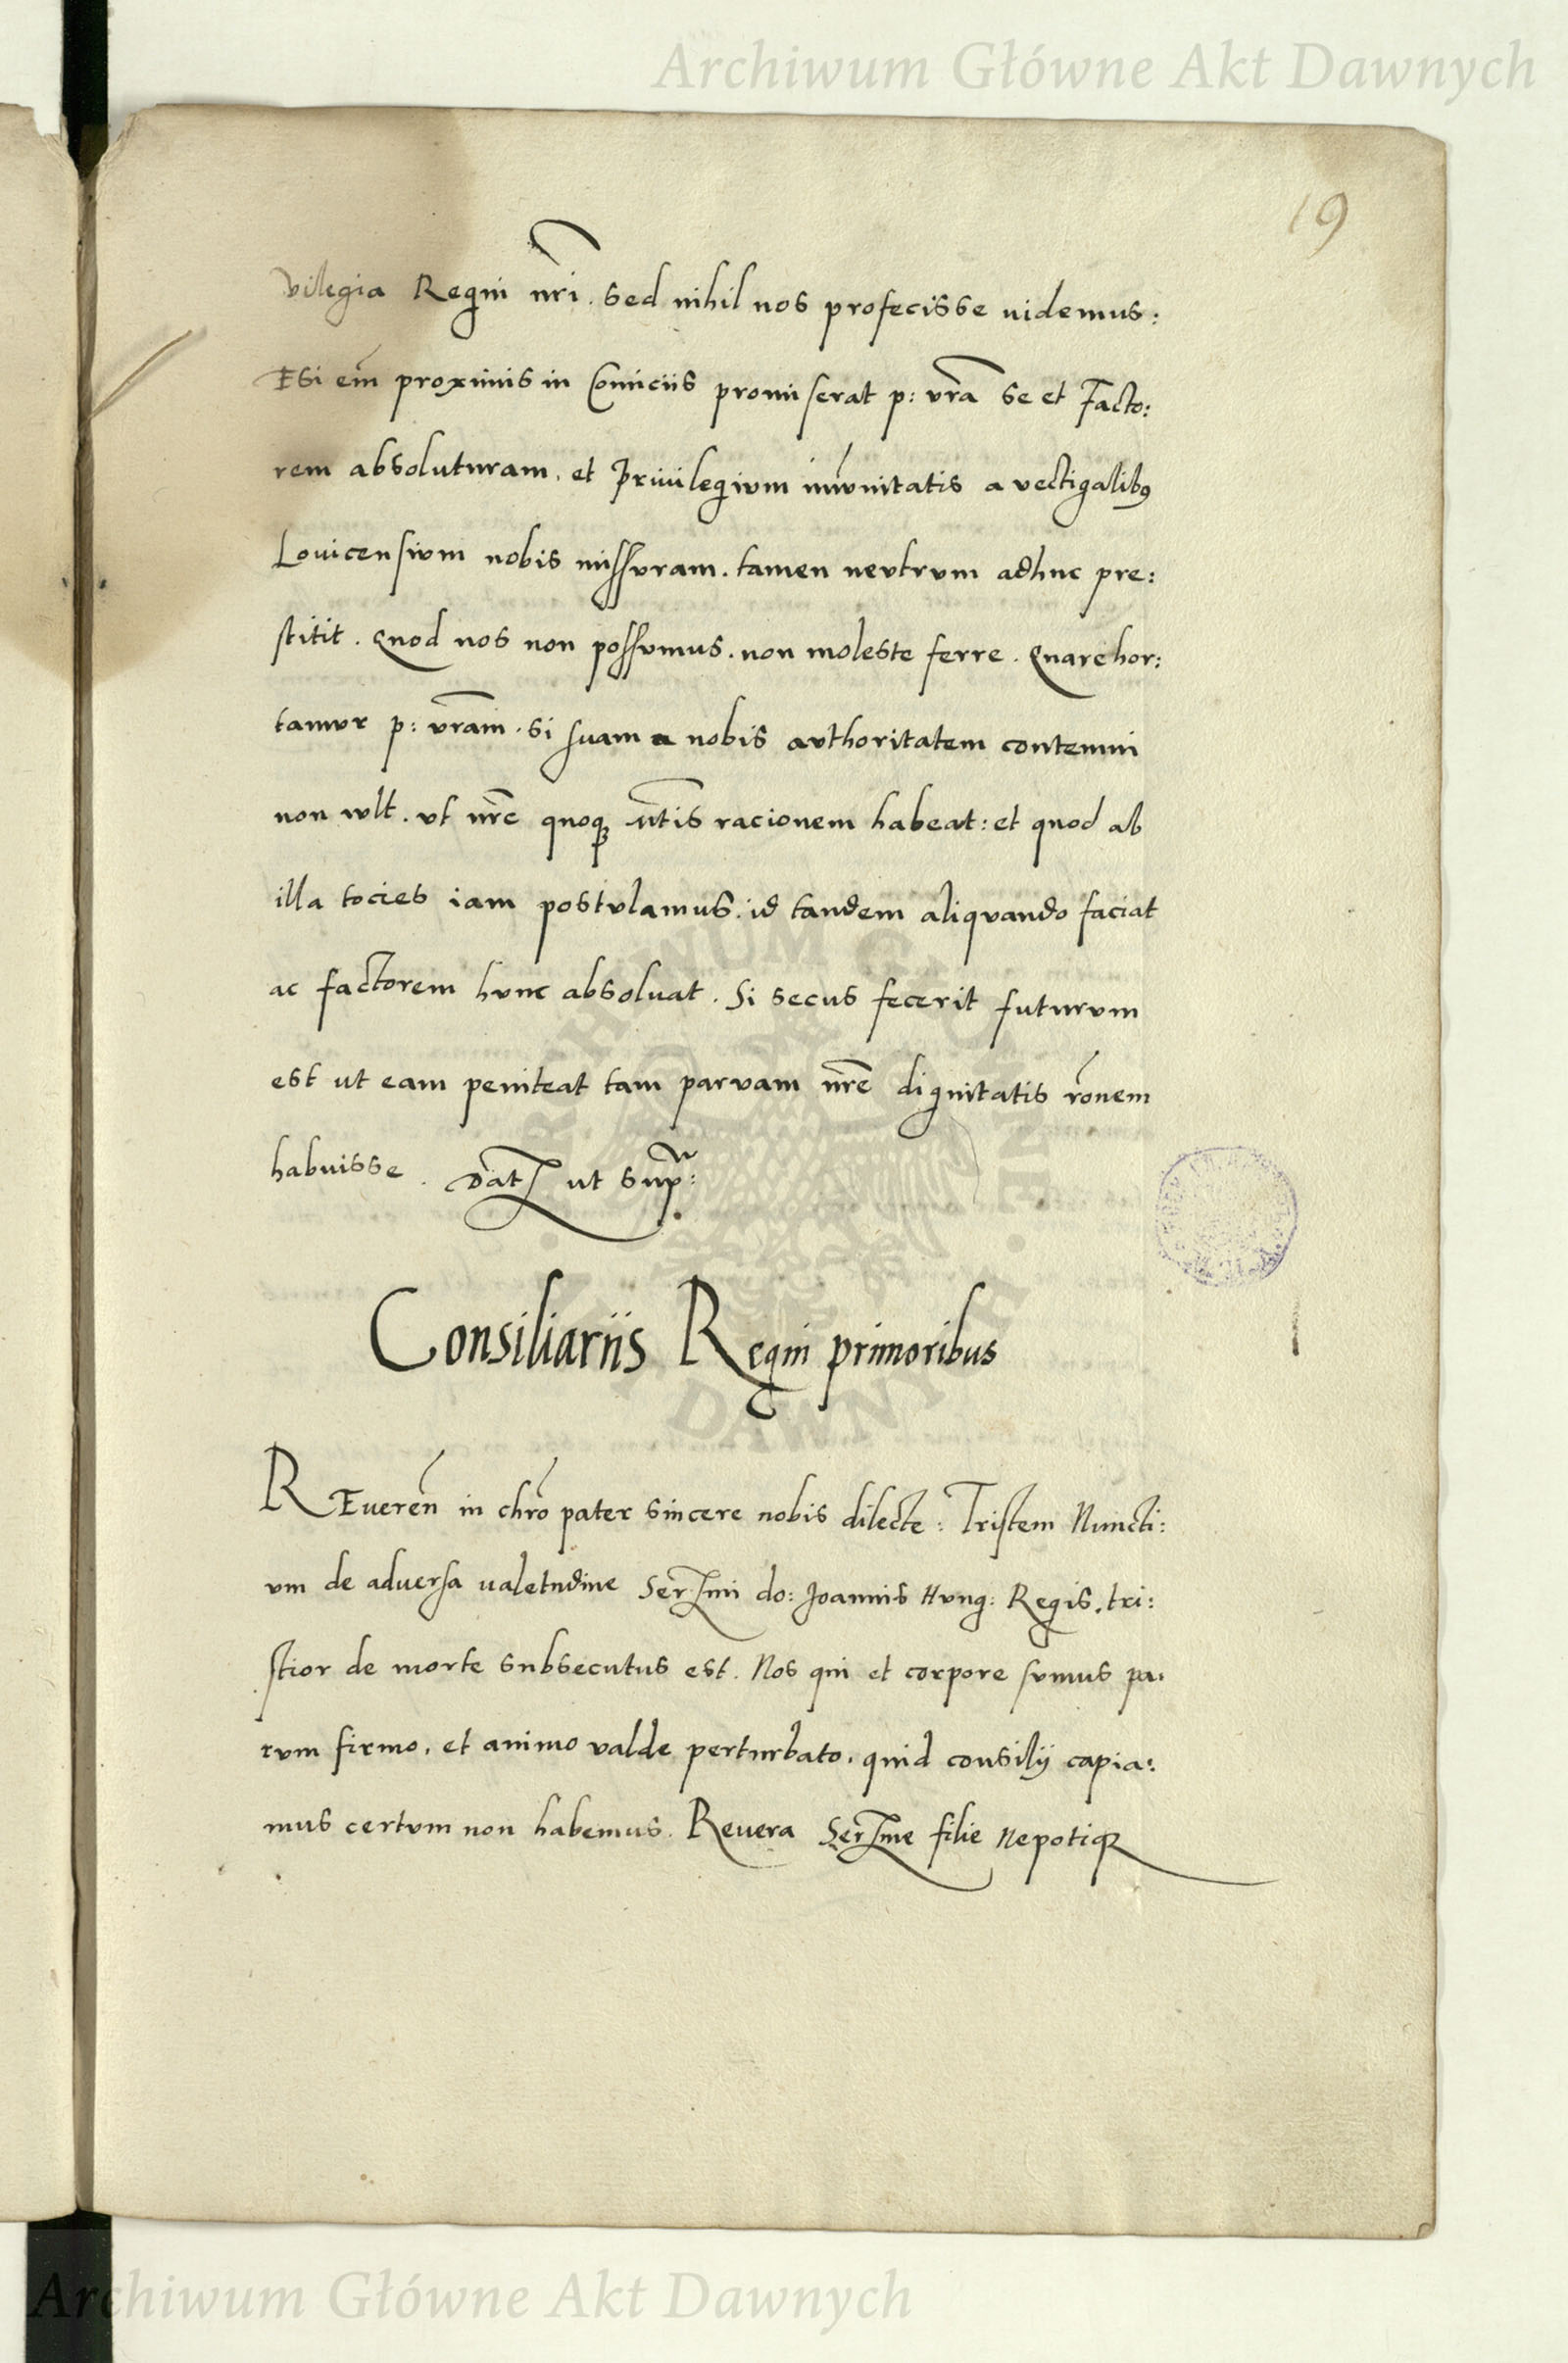 Archiwum Główne Akt Dawnych
19
vilegia Regni nr̃i. sed nihil nos profecisse uidemus:
Esi em̃ proximis in Comiciis promiserat p: vr̃a se et Facto:
rem absoluturam, et Priuilegium im̃unitatis a vectigalibꝰ
Louicensium nobis missuram. tamen neutrum adhuc pre:
stitit. Quod nos non possumus. non moleste ferre. Quare hor:
tamur p: vr̃am. si suam a nobis authoritatem contemni
non vult. ut nr̃e quoqꝫ ũtis racionem habeat: et quod ab
illa tocies iam postulamus. id tandem aliquando faciat
ac factorem hunc absoluat. Si secus fecerit futurum
est ut eam peniteat tam parvam nr̃e dignitatis rõnem
habuisse. Datꝫ ut sup:
Consiliariis Regni primoribus
REueren̄ in chr̃o pater sincere nobis dilecte: Tristem Nuncti:
um de aduersa ualetudine Serꝫmi do: Joannis Hung: Regis, tri:
stior de morte subsecutus est. Nos qui et corpore sumus pa:
rum firmo, et animo valde perturbato, quid consilij capia:
mus certum non habemus. Reuera Serꝫme filie Nepotiqꝫ
ARCHIWUM GŁÓWNE AKT DAWNYCH
Archiwum Główne Akt Dawnych